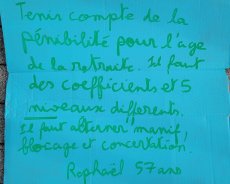 Tenir compte de la
pénibilité pour l'âge
de la retraite. Il faut
des coefficients et 5
niveaux differents.
Il faut alterner manif,
blocage et concertation.
Raphaël 57 ans